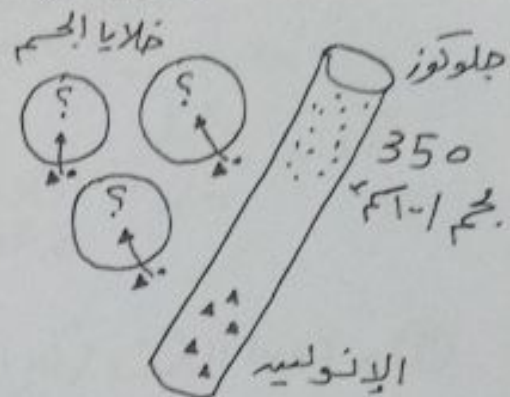 خلايا الجسم
؟
؟
؟
جلوكوز
350
مجم / ١٠٠سم٣
الإنولين